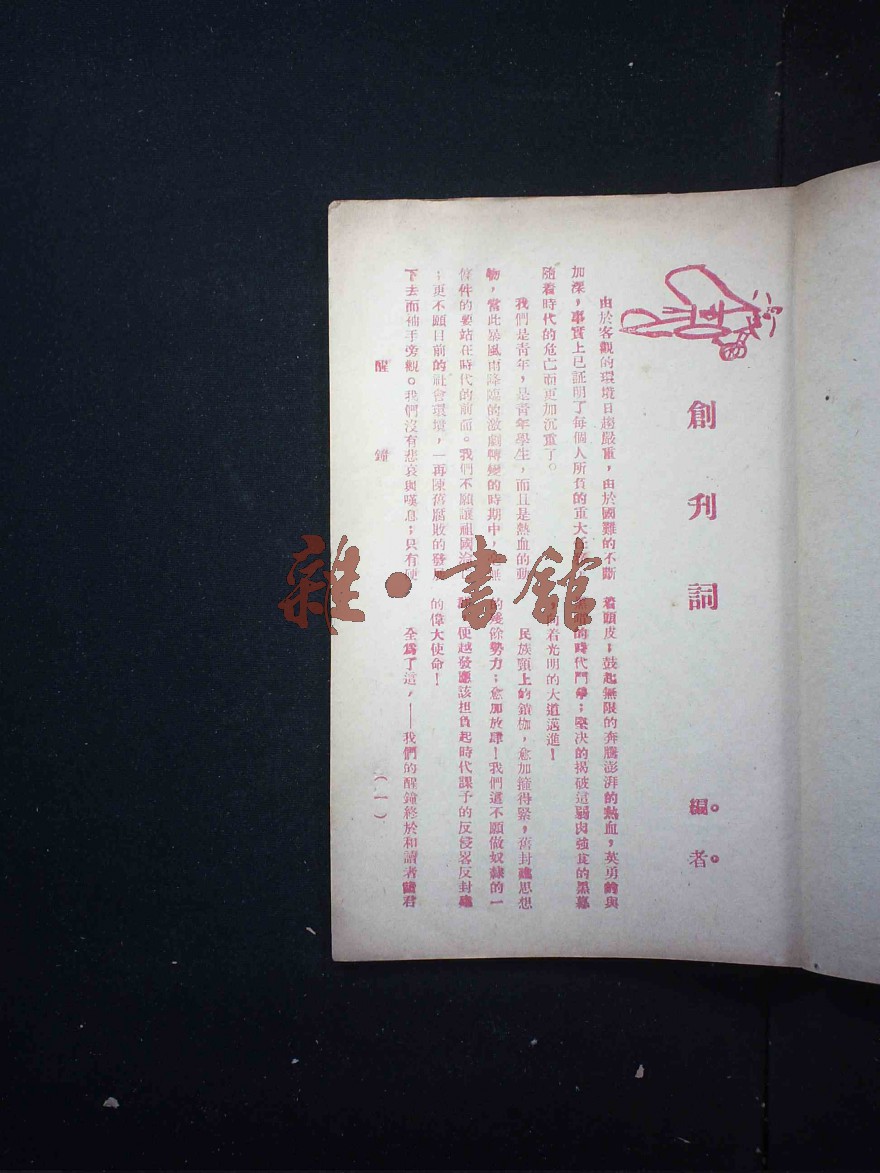 創刊詞
編者
由於客觀的環境日趨嚴重，由於國難的不斷
加深，事實上已証明了每個人所負的重大
隨着時代的危亡而更加沉重了。
我們是青年，是青年學生，而且是熱血的動
物，當此暴風雨降臨的激劇轉變的時期中，無
條件的要站在時代的前面。我們不願讓祖國淪
；更不願目前的社會環境，一再陳舊腐敗的發展
下去而袖手旁觀。我們沒有悲哀與嘆息；只有硬
着頭皮；鼓起無限的奔騰澎湃的熱血，英勇的與
的時代鬥爭；堅決的揭破這弱肉強食的黑幕
，向着光明的大道邁進！
民族頸上的鎖枷，愈加撞得緊，舊封建思想
的殘餘勢力；愈加放肆！我們這不願做奴隸的一
便越發應該担負起時代課予的反侵畧反封建
的偉大使命！
全爲了這，——我們的醒鐘終於和讀者諸君
醒鐘
（一）
雜·書館